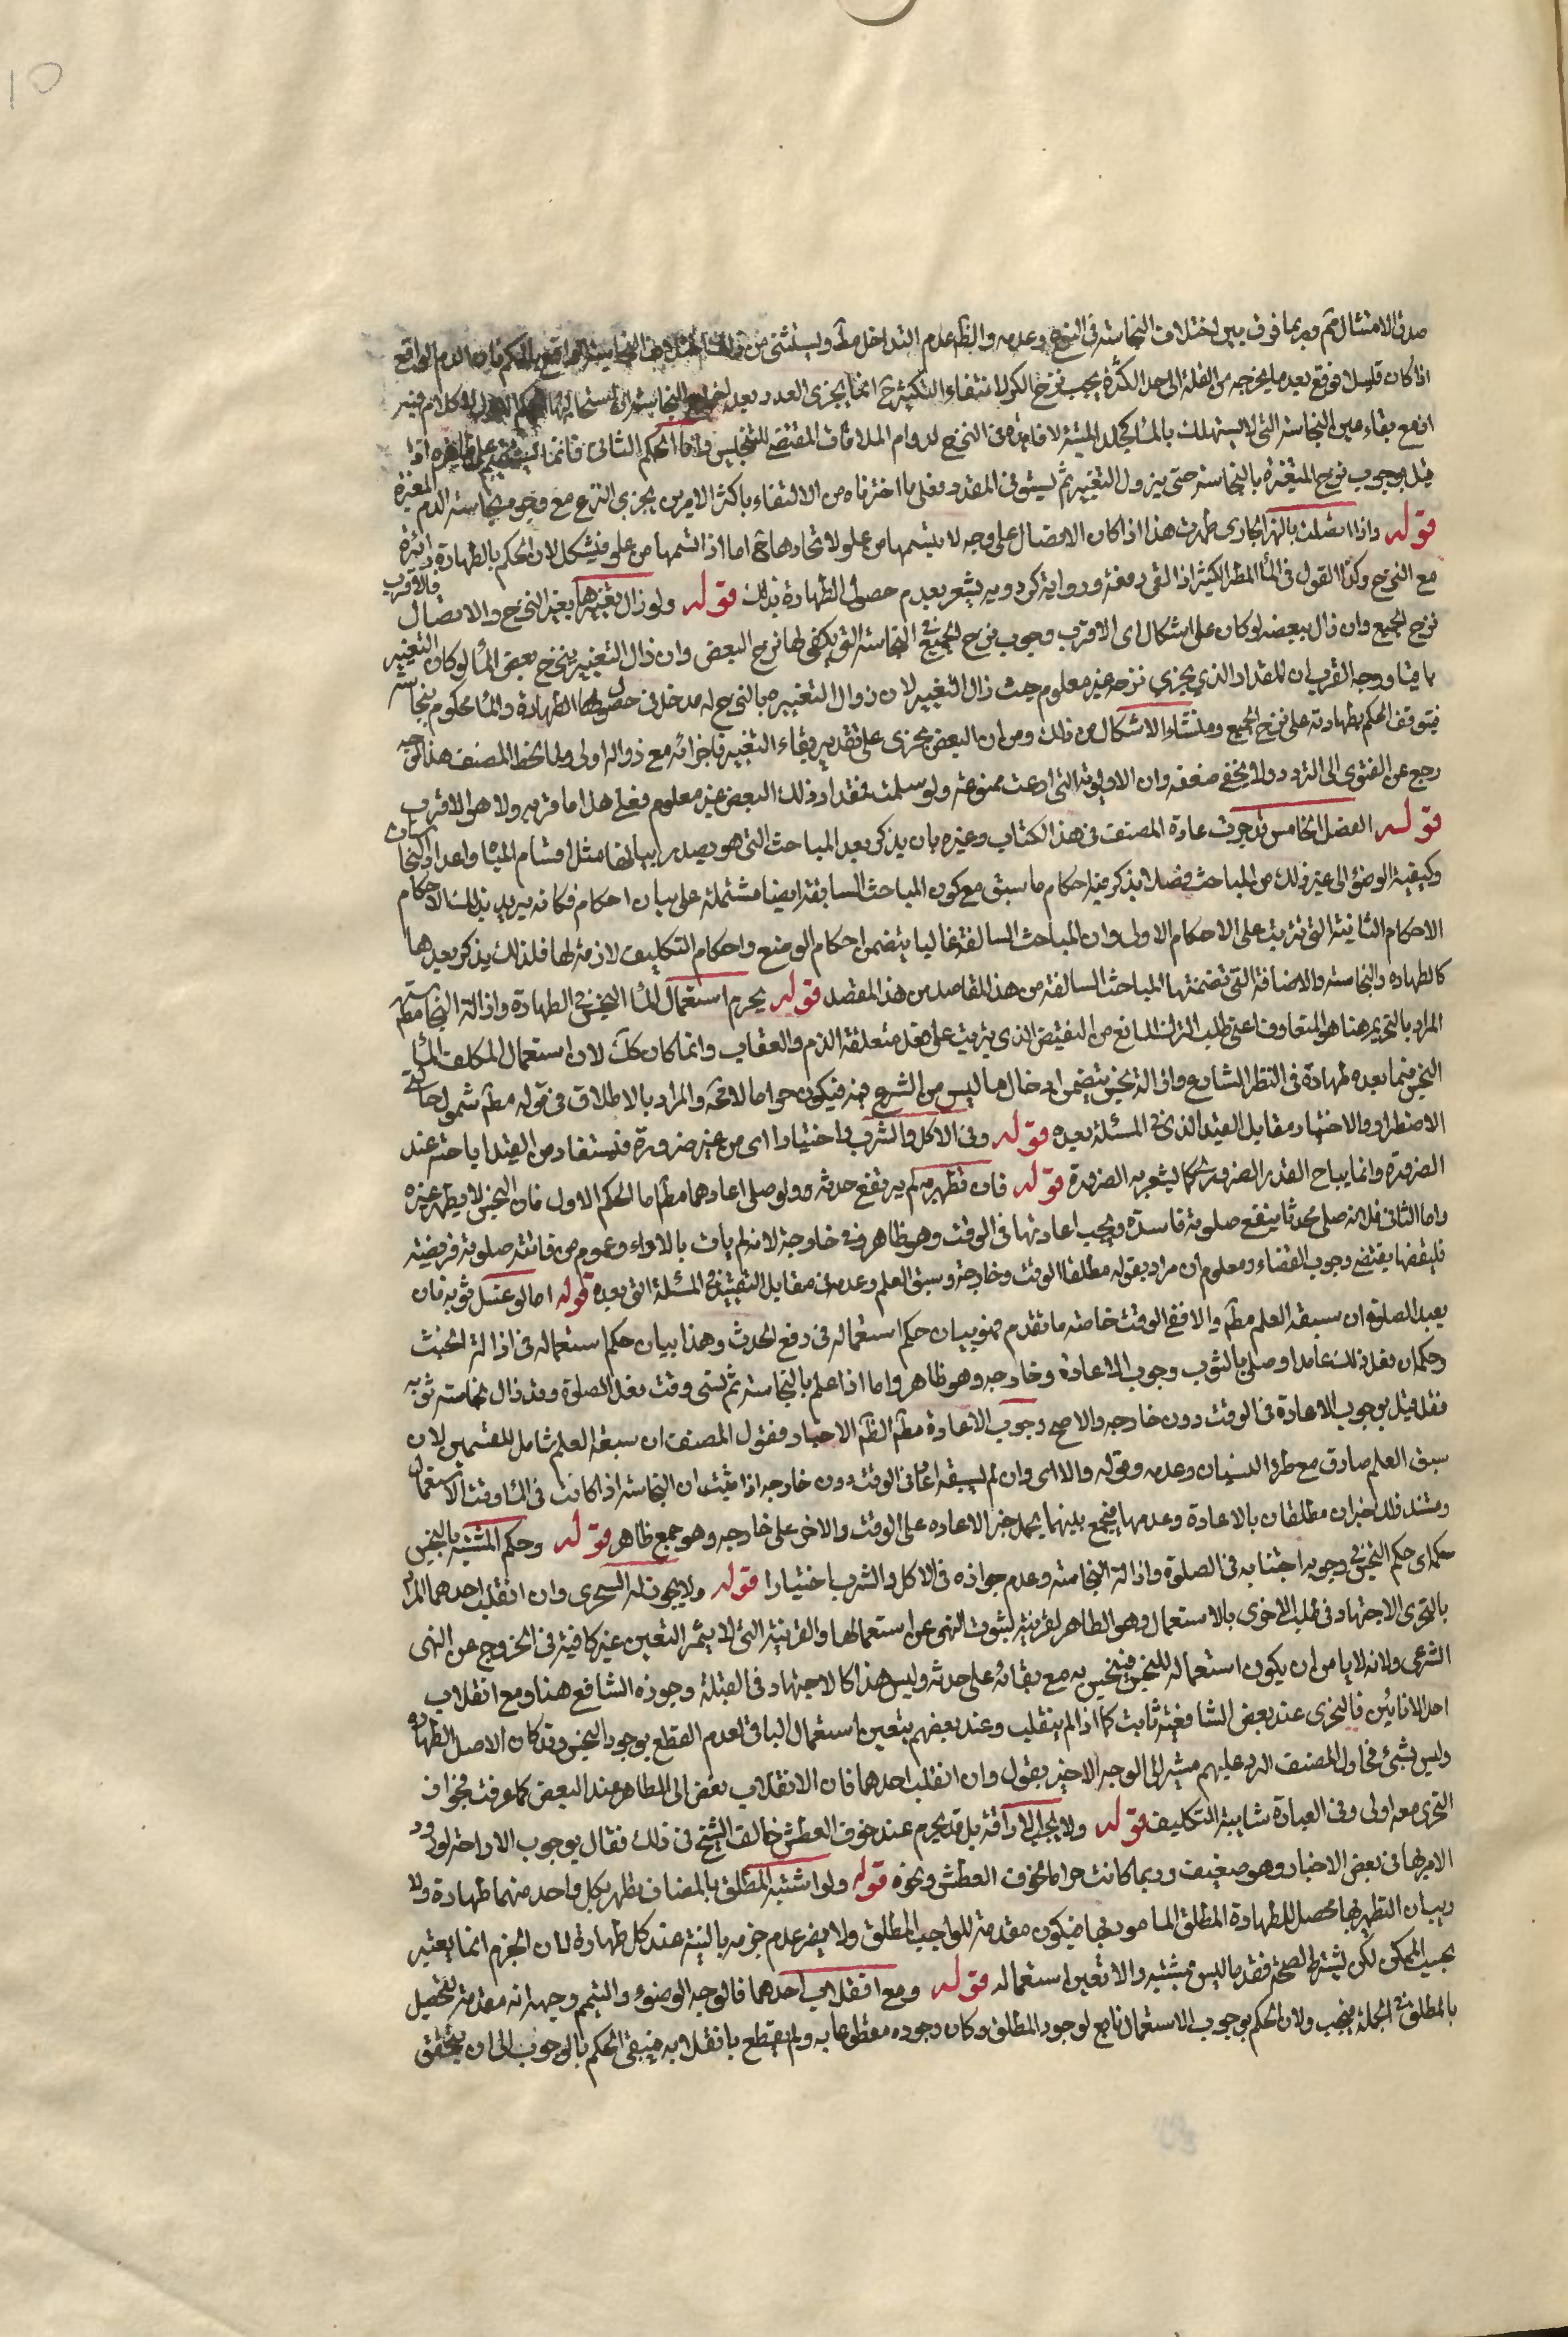 10
صدق الامتثال ثم وربما فرق بين اختلاف النجاسة في النوع وعدمه والظ عدم التداخل مط ويستثنى من ذلك اختلاف النجاسة الواقع بالكم فان الدم الواقع
اذا كان قليلا فوقع بعده ما يخرجه من القلة الى حد الكثرة يجب نزح الكثر لانتفاء التكثير ح انما يجزى العدد بعد اخراج النجاسة او استحالتها
اذ مع بقاء عين النجاسة التي لا يستهلك بالماء كجلد الميتة لا فايدة في النزح لدوام الملاقات المقتضية للتنجيس واما الحكم الثاني فانما يستقيم على ظاهره اذا
قيل بوجوب نزح المتغيرة بالنجاسة حتى يزول التغير ثم يستوفى المقدر فعلى ما اخترناه من الاكتفاء باكثر الامرين يجزى النزح مع وجود نجاسة الدم المغيرة
قوله واذا اتصلت بالنهر الجارى طهرت هذا اذا كان الاتصال على وجه لا يتسمها من علو لاتحادها ح اما اذا تسمها من علو فيشكل لان الحكم بالطهارة دائرة
مع النزح وكذا القول في الماء المطر الكثير اذا القى دفعة ورواية كردويه يشعر بعدم حصول الطهارة بذلك قوله ولو زال تغيرها بغير النزح والاتصال فالاقرب
نزح الجميع وان زال ببعضه لو كان على اشكال اى الاقرب وجوب نزح الجميع في النجاسة التي يكفى لها نزح البعض وان زال التغير بنزح بعض الماء لو كان التغير
باقيا ووجه القرب ان المقدار الذي يجزي نزحه غير معلوم حيث زال التغيير لان زوال التغيير بالنزح له مدخل في حصول الطهارة والماء محكوم بنجاسته
فيتوقف الحكم بطهارته على نزح الجميع ومنشاء الاشكال من ذلك ومن ان البعض يجزى على تقدير بقاء التغيير فاجزائه مع زواله اولى ولما لحظ المصنف هذا الوجه
رجع عن الفتوى الى التردد ولا يخفى ضعفه وان الاولوية التي ادعت ممنوعة ولو سلمت فمقدار ذلك البعض غير معلوم فعلى هذا ما قربه ولا هو الاقرب
قوله الفصل الخامس قد جرت عادة المصنف في هذا الكتاب وغيره بان يذكر بعد المباحث التي هو بصدد بيانها مثل اقسام المياه واعداد النجاسات
وكيفية الوضوء الى غير ذلك من المباحث فصلا يذكر فيه احكام ما سبق مع كون المباحث السابقة ايضا مشتملة على بيان احكام فكانه يريد بذلك الاحكام
الاحكام الثانية التي ترتبت على الاحكام الاولى وان المباحث السالفة غالبا يتضمن احكام الوضع واحكام التكليف لازمة لها فلذلك يذكر بعدها
كالطهاره والنجاسة والاضافة التي تضمنتها المباحث السالفة من هذا المقاصد من هذا المقصد قوله يحرم استعمال الماء النجس في الطهارة وازالة النجاسة مط
المراد بالتحريم هنا هو المتعارف اعنى طلب الترك المانع من النقيض الذى يترتب على فعل متعلقه الذم والعقاب وانما كان كك لان استعمال المكلف الماء
النجس فيما يعده طهارة في النظر الشارع وازالة نجس يتضمن ادخال ما ليس من الشرع فيه فيكون حراما لا محة والمراد بالاطلاق في قوله مط شمول حالتي
الاضطرار والاختيار مقابل القيد الذى في المسئلة بعده قوله وفي الاكل والشرب اختيارا اى من غير ضرورة فيستفاد من القيد اباحته عند
الضرورة وانما يباح القدر الضرورى كما يشعر به الضرورة قوله فان تطهر به لم يرتفع حدثه ولو صلى اعادهما مط اما الحكم الاول فان النجس لا يطهر غيره
واما الثاني فلانه صلى محدثا فيقع صلوته فاسدة ويجب اعادتها في الوقت وهو ظاهر وفى خارجه لانه لم يات بالاداء وعموم من فاتته صلوة فريضة
فليقضها يقتضى وجوب القضاء ومعلوم ان مراده بقوله مطلقا الوقت وخارجه وسبق العلم وعدمه في مقابل التقييد في المسئلة التي بعده قوله اما لو غسل ثوبه فانه
يعيد الصلوة ان سبقه العلم مط والا ففي الوقت خاصة ما تقدم فهو بيان حكم استعماله في رفع الحدث وهذا بيان حكم استعماله في ازالة الخبث
وحكم ان فعل ذلك عامدا وصلى بالثوب وجوب الاعادة وخارجه وهو ظاهر واما اذا علم بالنجاسة ثم نسى وقت فعل الصلوة وقد زال نجاسته ثوبه
فقد قيل بوجوب الاعادة في الوقت دون خارجه والاصح وجوب الاعادة مط لظم الاخبار فقول المصنف ان سبقه العلم شامل للقسمين لان
سبق العلم صادق مع طرو النسيان وعدمه وقوله والا اى وان لم يسبقه اعاد في الوقت دون خارجه اذا ثبت ان النجاسة اذا كانت في الماء وقت الاستعمال
ومستند ذلك خبران مطلقان بالاعادة وعدمها فيجمع بينهما بحمل خبر الاعاده على الوقت والاخر على خارجه وهو جمع ظاهر قوله وحكم المشتبه بالنجس
حكمه اى حكم النجس في وجوب اجتنابه في الصلوة وازالة النجاسة وعدم جوازه في الاكل والشرب اختيارا قوله ولا يجوز له التحرى وان انقلب احدهما المراد
بالتحرى الاجتهاد في طلب الاحرى بالاستعمال وهو الطاهر لقرينة لثبوت النهى عن استعمالها والقرينة التي لا يثمر التعين غير كافية في الخروج عن النهى
الشرعى ولانه لا يامن ان يكون استعماله للنجس فينجس به مع بقائه على حدثه وليس هذا كالاجتهاد في القبلة وجوزه الشافعى هنا ومع انقلاب
احد الانائين فالتحرى عند بعض الشافعية ثابت كما اذا لم ينقلب وعند بعضهم يتعين استعمال الباقى لعدم القطع بوجود النجس وقد كان الاصل الطهارة
وليس بشئ فحاول المصنف الرد عليهم مشيرا الى الوجه الاخير بقول وان انقلب احدهما فان الانقلاب يفضى الى الطاهر عند البعض كما عرفت فجواز
التحرى معه اولى وفى العبادة شايبة التكليف قوله ولا يجب الاراقة بل قد يحرم عند خوف العطش خالف الشيخ في ذلك فقال بوجوب الاراقة لورود
الامر بها في بعض الاخبار وهو ضعيف وربما كانت حراما كخوف العطش ونحوه قوله ولو اشتبه المطلق بالمضاف تطهر بكل واحد منهما طهارة ولا
ريب ان التطهير بهما محصل للطهارة المطلق المامور بها فيكون مقدمة للواجب المطلق ولا يضر عدم جزمه بالنية عند كل طهارة لان الجزم انما يعتبر
بحسب الممكن لكن يشترط لصحته فقد ما ليس بمشتبه والا تعين استعماله قوله ومع انقلاب احدهما فالوجه الوضوء والتيمم وجهه انه مقدمة لتحصيل
بالمطلق في الجملة فيجب ولان الحكم بوجوب الاستعمال تابع لوجود المطلق وكان وجوده مقطوعا به ولم يقطع بانقلابه فيبقى الحكم بالوجوب الى ان يتحقق